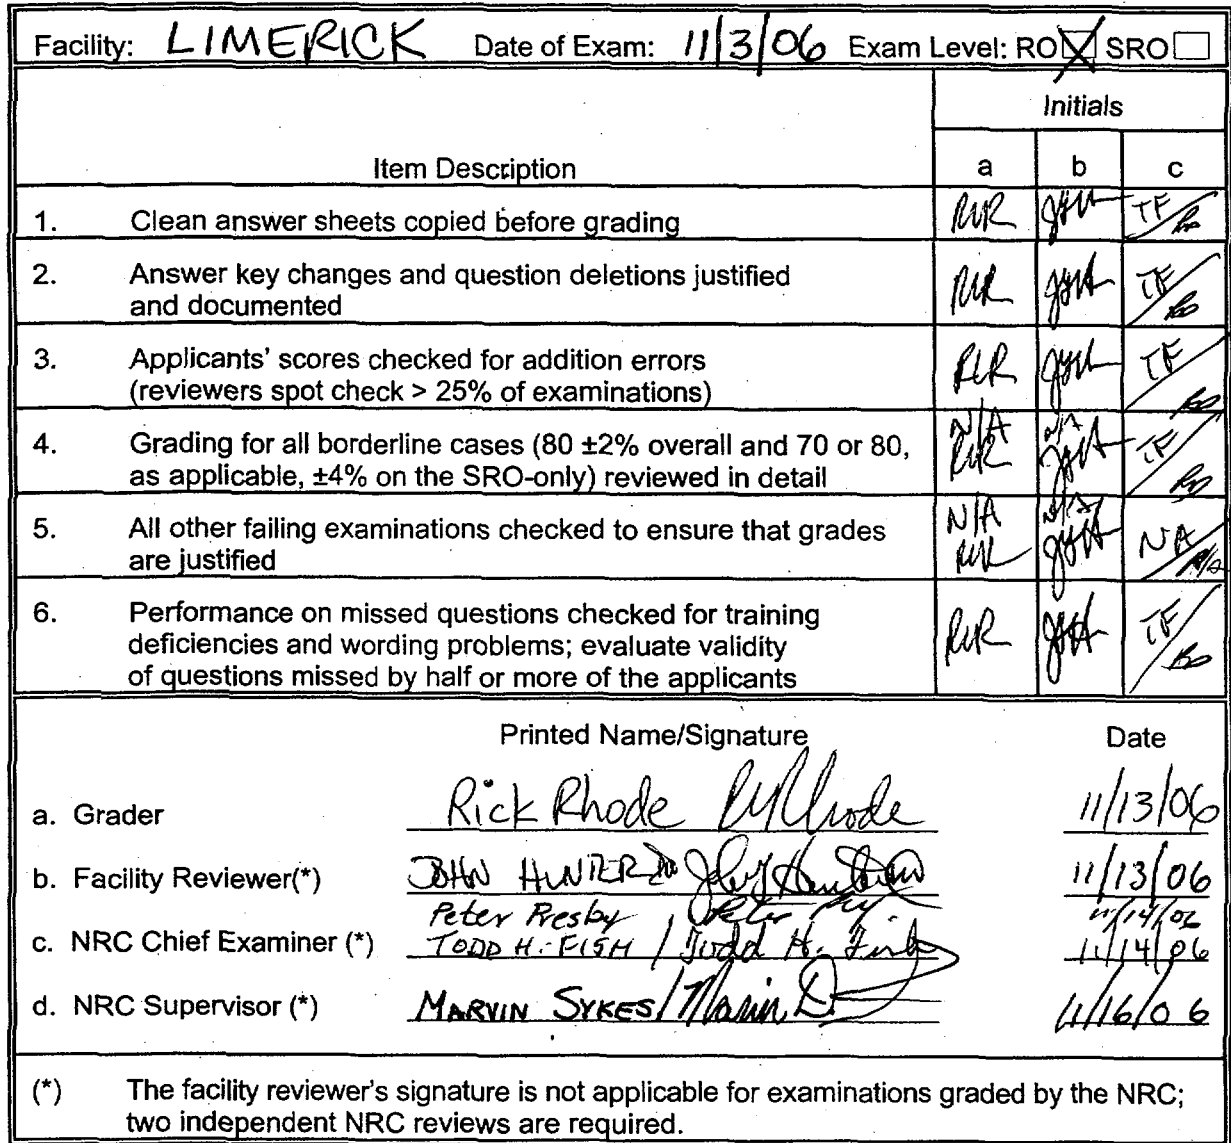 Facility: LIMERICK Date of Exam: 11/3/06 Exam Level: RO☒ SRO☐
Initials
Item Description a b c
1. Clean answer sheets copied before grading RWR TF
2. Answer key changes and question deletions justified
and documented RWR TF
3. Applicants' scores checked for addition errors
(reviewers spot check > 25% of examinations) RWR TF
N/A N/A
4. Grading for all borderline cases (80 ±2% overall and 70 or 80,
as applicable, ±4% on the SRO-only) reviewed in detail RWR TF
N/A N/A
5. All other failing examinations checked to ensure that grades
are justified RWR NA N/A
6. Performance on missed questions checked for training
deficiencies and wording problems; evaluate validity
of questions missed by half or more of the applicants RWR TF
Printed Name/Signature Date
a. Grader Rick Rhode 11/13/06
b. Facility Reviewer(*) JOHN HUNTER 11/13/06
Peter Presby 11/14/06
c. NRC Chief Examiner (*) TODD H. FISH / Todd H. Fish 11/14/06
d. NRC Supervisor (*) MARVIN SYKES / Marvin D. 11/16/06
(*) The facility reviewer's signature is not applicable for examinations graded by the NRC;
two independent NRC reviews are required.